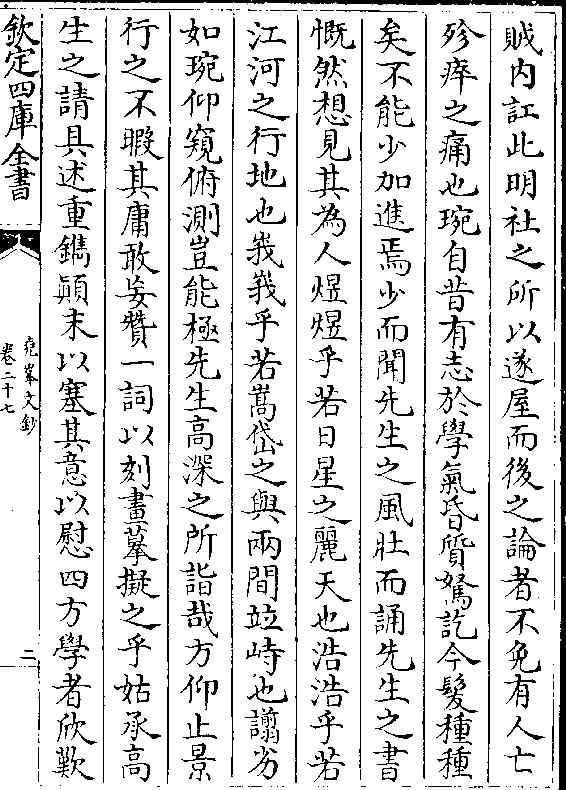 賊内訌此明社之所以遂屋而後之論者不免有人亡
殄瘁之痛也琬自昔有志於學氣昏質駑訖今髮種種
矣不能少加進焉少而聞先生之風壯而誦先生之書
慨然想見其為人煜煜乎若日星之麗天也浩浩乎若
江河之行地也峩峩乎若嵩岱之與兩間竝峙也譾劣
如琬仰窺俯測豈能極先生高深之所詣哉方仰止景
行之不暇其庸敢妄贊一詞以刻畫摹擬之乎姑承高
生之請具述重鐫顛末以塞其意以慰四方學者欣歎
欽定四庫全書
堯峯文鈔
卷二十七
二